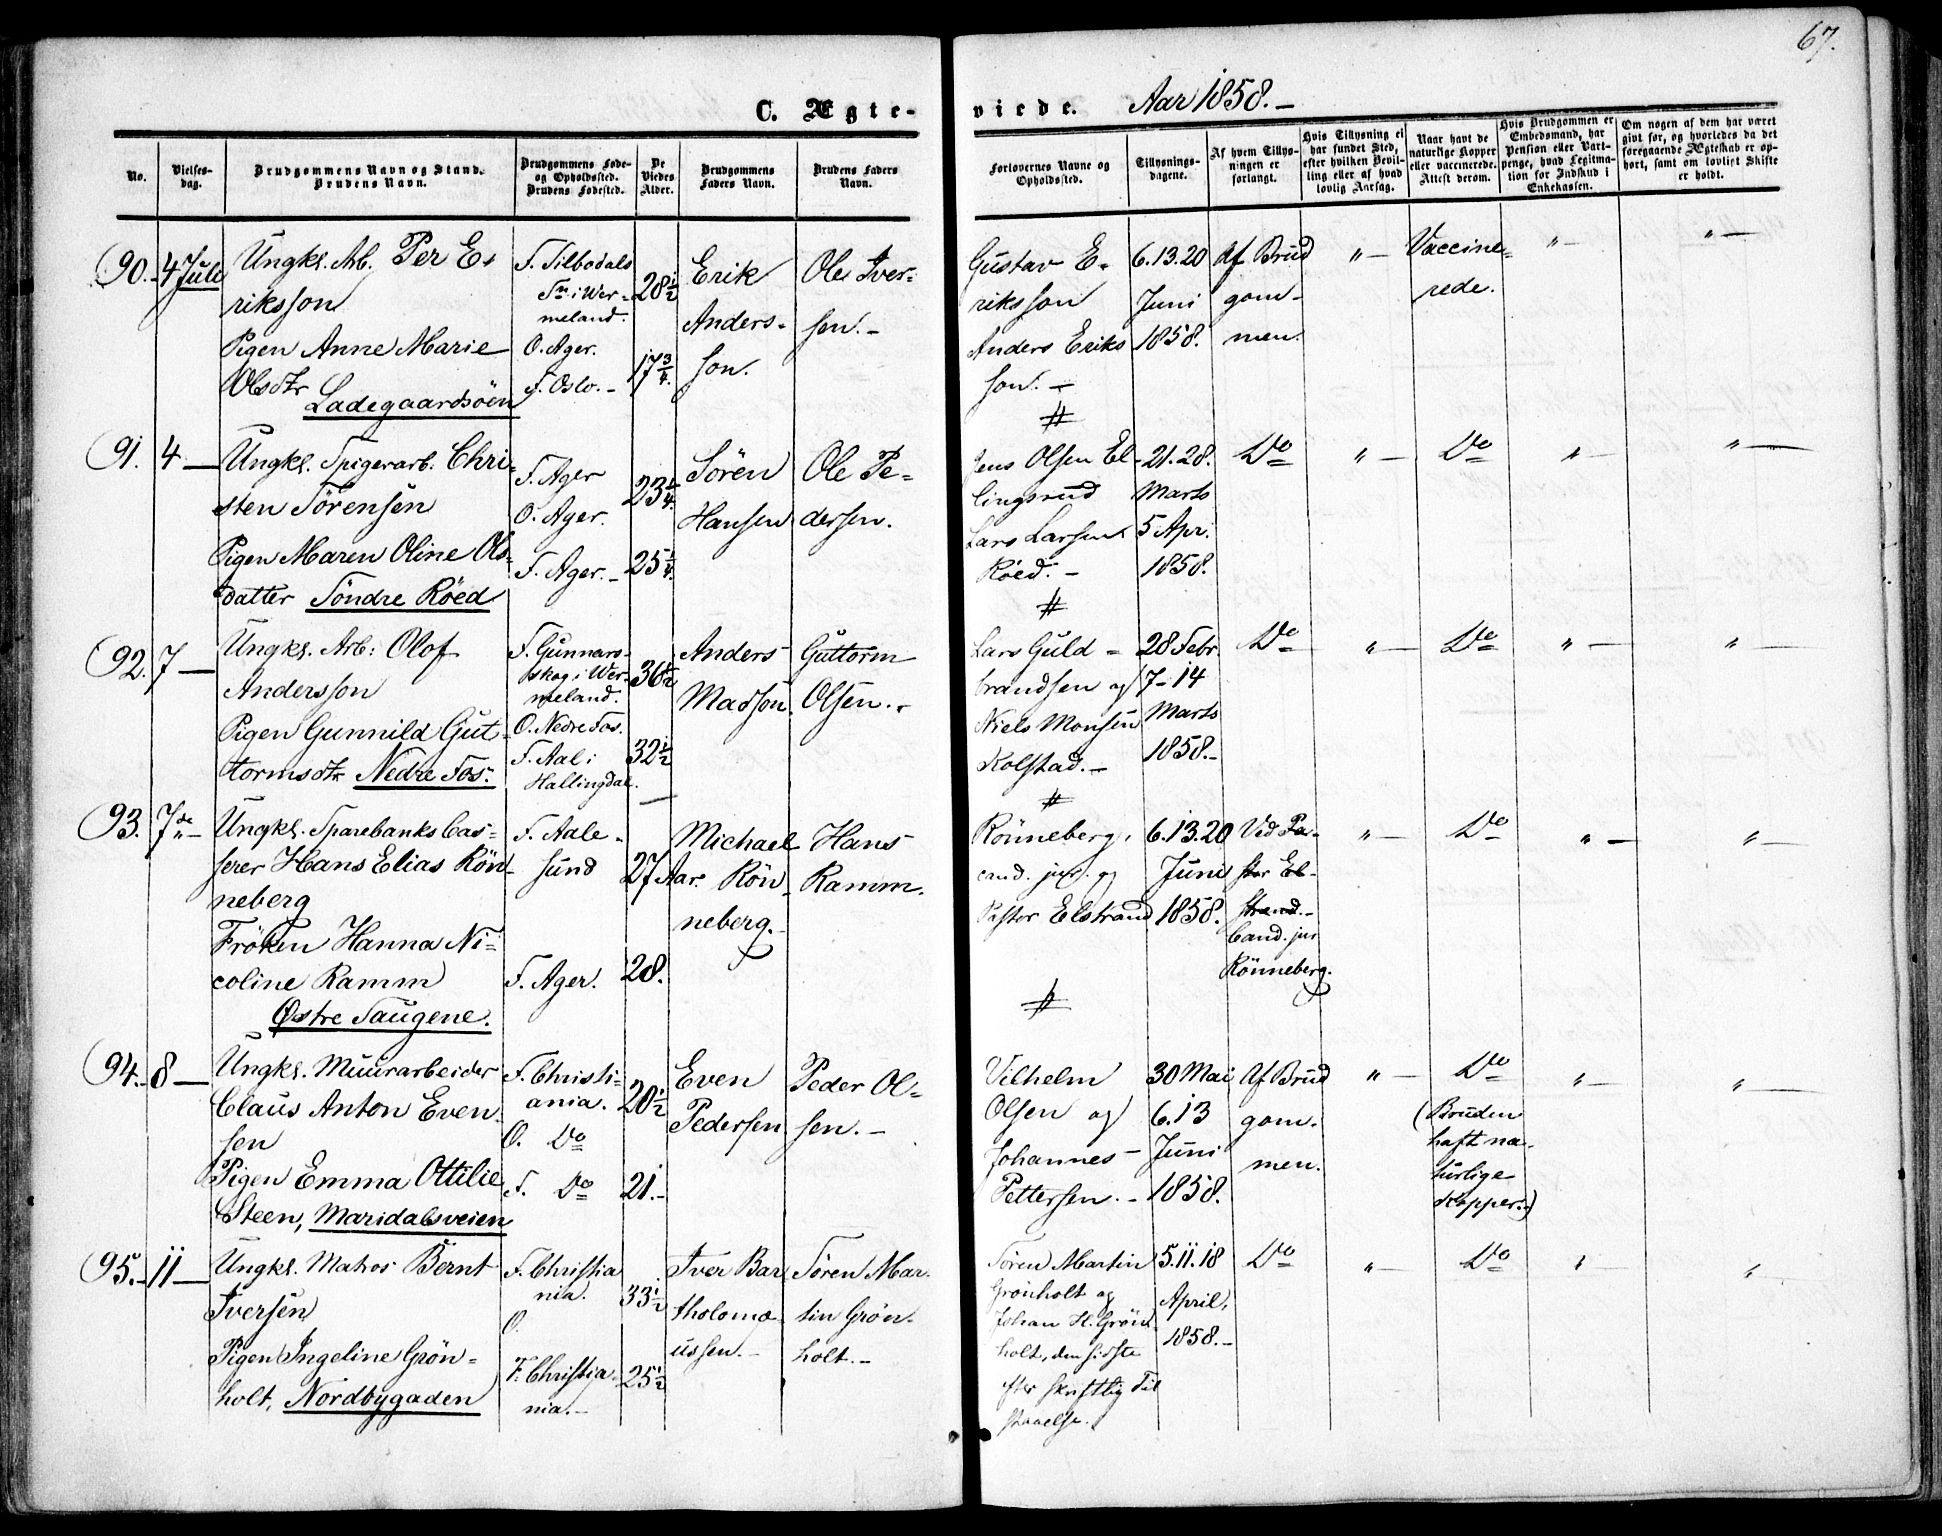 67.
C. Ægteviede. Aar 1858.-
No.
Vielses-
dag.
Brudgommens Navn og Stand.
Brudens Navn.
Brudgommens Føde-
og Opholdssted.
Brudens Fødested.
De
Viedes
Alder.
Brudgommens
Faders Navn.
Brudens Faders
Navn.
Forlovernes Navne og
Opholdssted.
Tillysnings-
dagene.
Af hvem Tillys-
ningen er
forlangt.
Hvis Tillysning ei
har fundet Sted,
efter hvilken Bevil-
ling eller af hvad
lovlig Aarsag.
Naar havt de
naturlige Kopper
eller vaccinerede.
Attest derom.
Hvis Brudgommen er
Embedsmand, har
Pension eller Vart-
penge, hvad Legitima-
tion for Indskud i
Enkekassen.
Om nogen af dem har været
gift før, og hvorledes da det
foregaaende Ægteskab er op-
hørt, samt om lovligt Skifte
er holdt.
90.- 4 Juli
Ungkl. Arb. Per E-
riksson
Pigen Anne Marie
Olsdtr
Ladegaardsöen
F. Tilbodals
Sn i Wer-
meland.
O. Ager.
F. Oslo.-
28 1/2
17 3/4.
Erik
Anders-
son.
Ole Iver-
sen.-
Gustav E-
riksson
Anders Eriks
son. -
6.13.20
Juni
1858.
Af Brud
gom-
men.
" -
Vaccine-
rede.
" -
" -
#
91. 4 -
Ungkl. Spigerarb. Chri-
sten Sörensen
Pigen Maren Oline Ols-
datter Söndre Röed
F. Ager
O. Ager.
F. Ager.-
23 1/4.
25 1/4.
Sören
Hansen
Ole Pe-
dersen.
Jens Olsen El-
lingsrud
Lars Larsen
Röed. -
21.28.
Marts
5 Apr.
1858.
Do
" -
Do
" -
" -
#
92. 7 -
Ungkl. Arb: Olof
Andersson
Pigen Gunnild Gut-
tormsdtr Nedre Fos.
F. Gunnars-
skog i Wer-
meland.
O. Nedre Fos.
F. Aal i
Hallingdal.
36 1/2
32 1/2
Anders
Madson.
Guttorm
Olsen.-
Lars Guld-
brandsen og
Niels Monsen
Kolstad.-
28 Febr.
7-14
Marts
1858.-
Do
" -
Do
" -
" -
#
93. 7de "-
Ungkl. Sparebanks Cas-
serer Hans Elias Rön-
neberg
Fröken Hanna Ni-
coline Ramm
Østre Taugene.
F. Aale-
sund
F. Ager.
27 Aar.
28.
Michael
Rön-
neberg.
Hans
Ramm.
Rönneberg,
cand. jur. og
Pastor Elstrand
6.13.20
Juni
1858.
Ved Pa-
stor El-
strand.-
Cand. jur
Rönneberg.
" -
Do
" -
" -
#
94.- 8 -
Ungkl. Muurarbeider
Claus Anton Even-
sen
Pigen Emma Ottilie
Steen, Maridalsveien
F. Christi-
ania.
O. Do
F. Do
20 1/2
21.-
Even
Pedersen
Peder Ol-
sen.-
Vilhelm
Olsen og
Johannes
Pettersen.-
30 Mai
6.13
Juni
1858.
Af Brud
gom-
men.
" -
Do
(Bruden
haft na-
turlige
Kopper.)
" -
" -
95.- 11 -
Ungkl. Matros Bernt
Iversen
Pigen Ingeline Grön-
holt, Nordbygaden
F. Christia
nia.
O.
F. Christia-
nia.-
33 1/2
25 1/2
Iver Bar
tholomæ-
ussen.-
Sören Mar-
tin Grön-
holt.-
Sören Martin
Grönholt og
Johan H. Grön-
holt, den sidste
efter skriftlig Til
staaelse.
5.11.18
April,
1858.-
Do
" -
Do
" -
" -